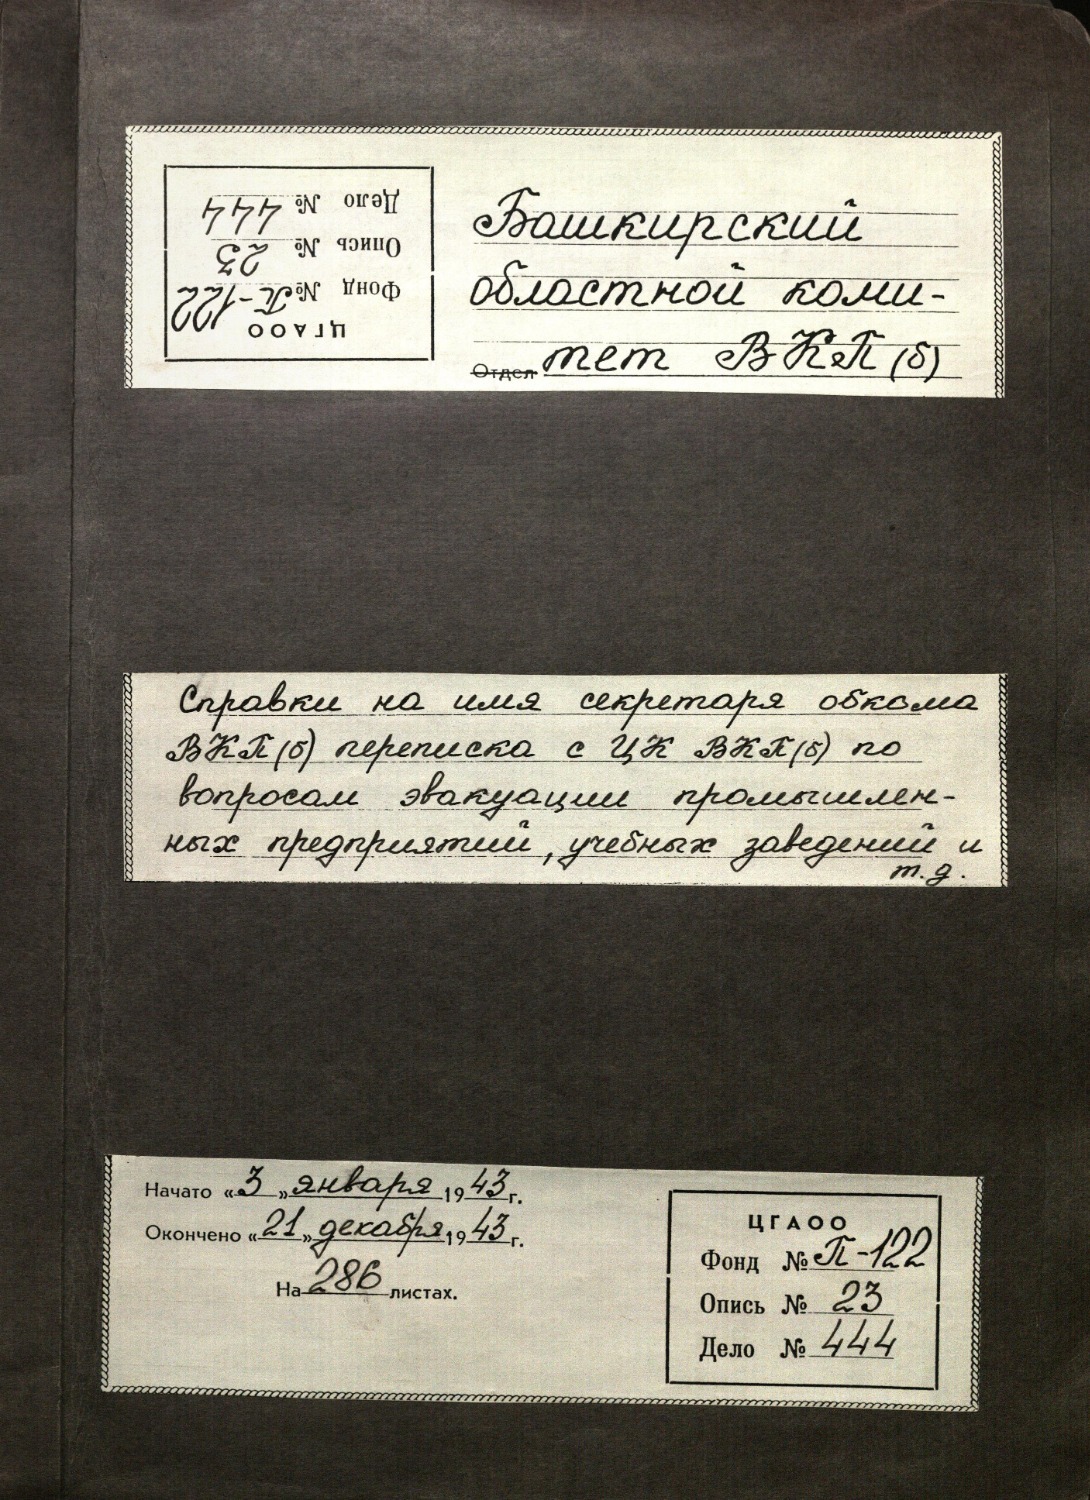 ЦГАОО
Фонд № П-122
Опись № 23
Дело № 444
Башкирский
областной коми-
Отдел тет ВКП(б)
Справки на имя секретаря обкома
ВКП(б) переписка с ЦК ВКП(б) по
вопросам эвакуации промышлен-
ных предприятий, учебных заведений и
т.д.
Начато «3» января 1943 г.
Окончено «21» декабря 1943 г.
На 286 листах.
ЦГАОО
Фонд № П-122
Опись № 23
Дело № 444